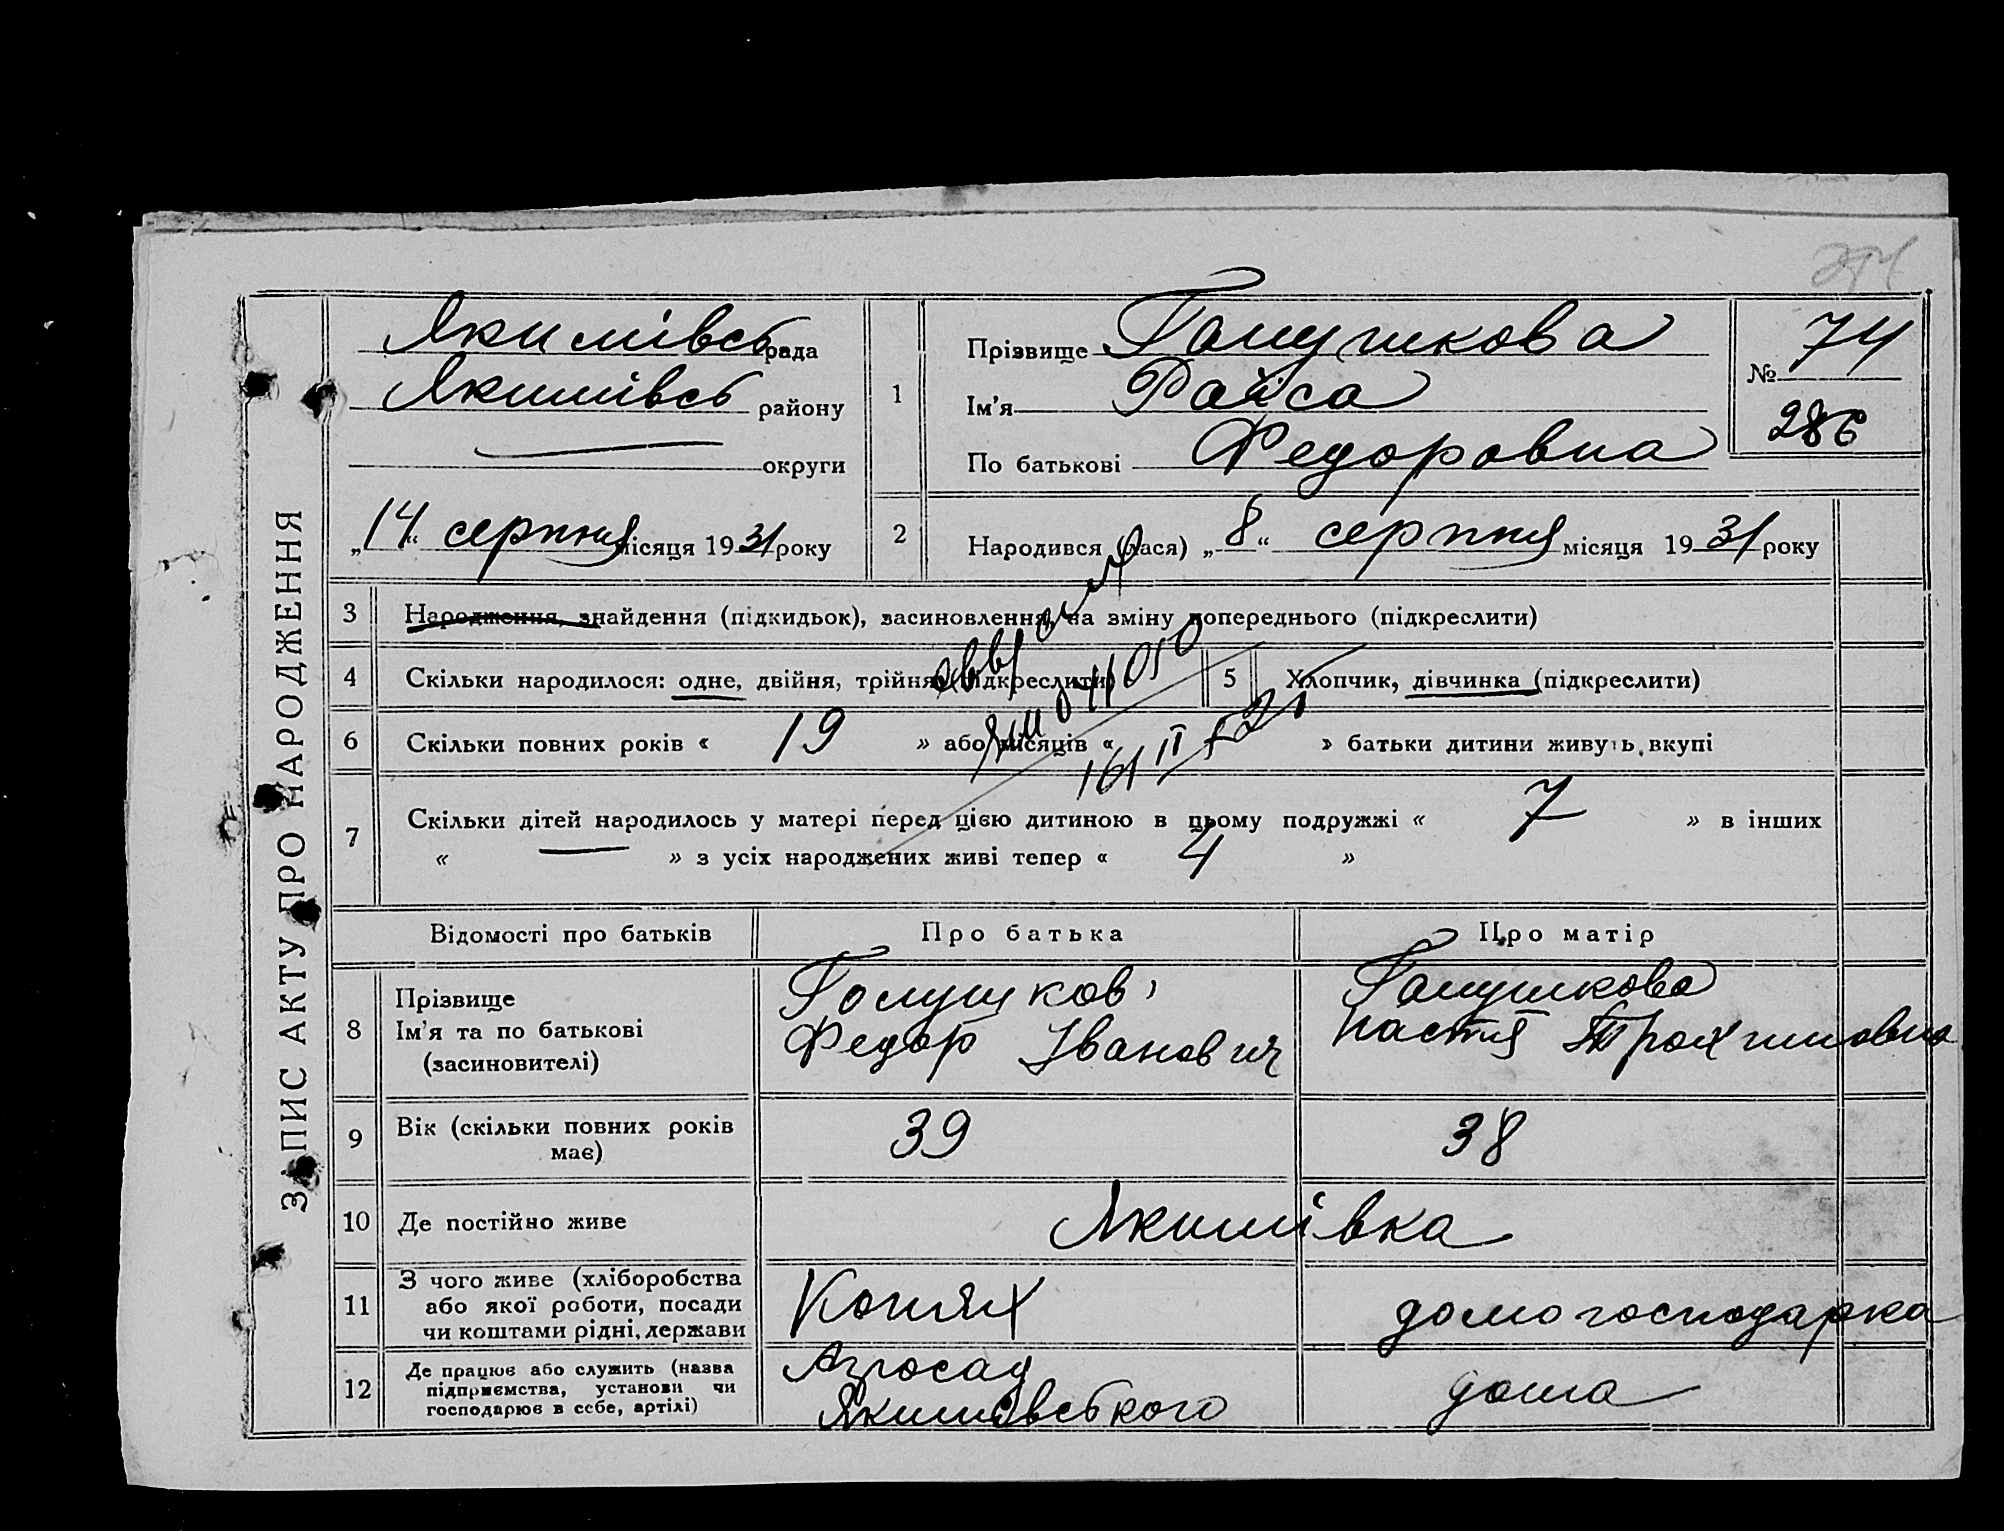 ЗАПИС АКТУ ПРО НАРОДЖЕННЯ
Якимівсь рада
Якимівсь району
— округи
„14“ серпня місяця 1931 року
1
Прізвище Галушкова
Ім'я Раїса
По батькові Федоровна
№ 74
286
2
Народився (лася) „8“ серпня місяця 1931 року
3 Народження, знайдення (підкидьок), засиновлення, на зміну попереднього (підкреслити)
4 Скільки народилося: одне, двійня, трійня (підкреслити)
5 Хлопчик, дівчинка (підкреслити)
6 Скільки повних років « 19 » або місяців « » батьки дитини живуть вкупі
7 Скільки дітей народилось у матері перед цією дитиною в цьому подружжі « 7 » в інших
« — » з усіх народжених живі тепер « 4 »
Відомості про батьків Про батька Про матір
8 Прізвище
Ім'я та по батькові
(засиновителі)
Голушков
Федор Іванович
Галушкова
Настя Трохимовна
9 Вік (скільки повних років
має)
39 38
10 Де постійно живе Якимівка
11 З чого живе (хліборобства
або якої роботи, посади
чи коштами рідні, держави
домогосподарка
12 Де працює або служить (назва
підприємства, установи чи
господарює в себе, артілі)
Якимівського
дома